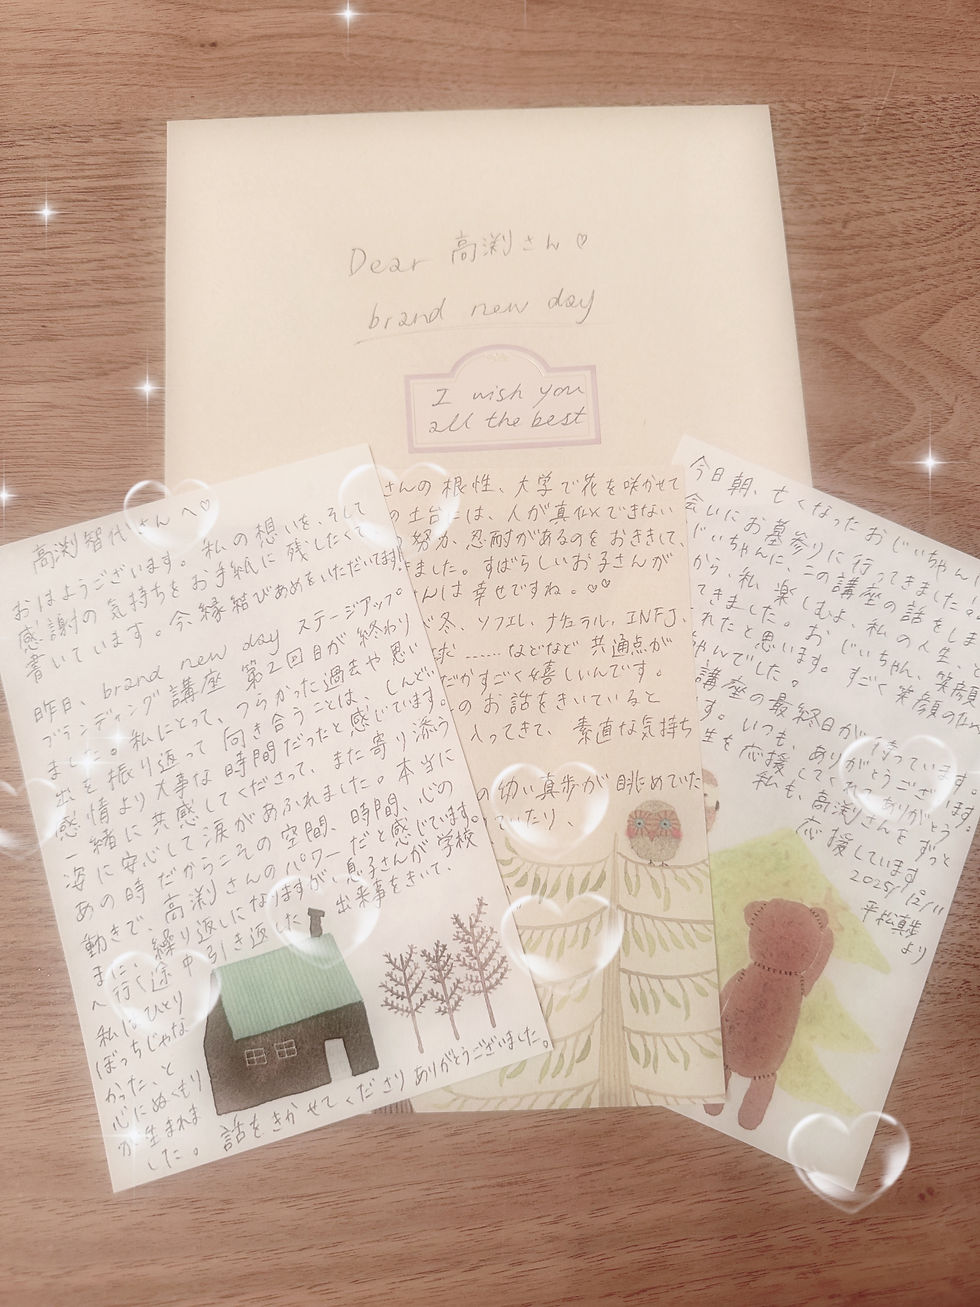 Dear 高渕さん♡
brand new day
I wish you
all the best
高渕智代さんへ♡
おはようございます。私の想いを、そして
感謝の気持ちをお手紙に残したくて
書いています。今、縁結びあめをいただいてます!
昨日、brand new day ステージアップ
ブランディング講座 第2回目が終わり
ました。私にとって、つらかった過去や思い
出を振り返って向き合うことは、しんどい
感情より大事な時間だったと感じています。
一緒に共感してくださって、また寄り添う
姿に安心して涙があふれました。本当に
あの時だからこその空間、時間、心の
動きで、高渕さんのパワーだと感じています。
まに、繰り返しになりますが、息子さんが学校
へ行く途中引き返した 出来事をきいて、
私はひとり
ぼっちじゃな
かった、と
心にぬくもり
が生まれま
した。話をきかせてくださりありがとうございました。
さんの根性、大学で花を咲かせて
の土台には、人が真似できない
努力、忍耐があるのをおききして、
きました。すばらしいお子さんが
んは幸せですね。♡♡
冬、ソフエレ、ナチュラル、INFJ、
……などなど共通点が
だかすごく嬉しいんです。
のお話をきいていると
入ってきて、素直な気持ち
の幼い真歩が眺めていた
ていたり、
今日朝、亡くなったおじいちゃん
会いにお墓参りに行ってきました。
じいちゃんに、この講座の話をしま
から、私、楽しむよ、私の人生、と
てきました。おじいちゃん、笑顔
れたと思います。すごく笑顔の似
ゃんでした。
講座の最終日が待っています
す。いつも、ありがとうございます
生を応援してくれてありがとう
私も、高渕さんをずっと
応援しています
2025/12/11
平松真歩
より